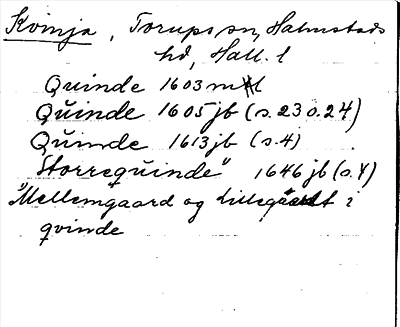 Kvinja, Torups sn, Halmstads
hd, Hall. l
Quinde 1603 ml
Quinde 1605 jb (s. 23 o. 24)
Quinde 1613 jb (s. 4)
Storrequinde" 1646 jb (s. 4)
"Mellemgaard og i
qvinde